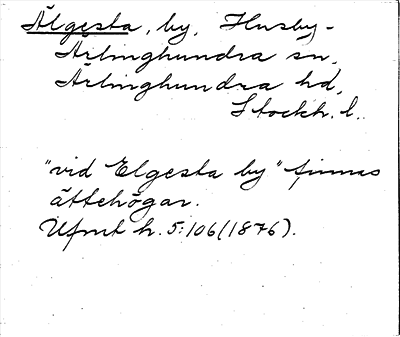 Älgesta, by, Husby-
Ärlinghundra sn,
Ärlinghundra hd,
Stockh. l.
"vid Elgesta by" finnas
ättehögar.
Ufmt h. 5:106 (1876).